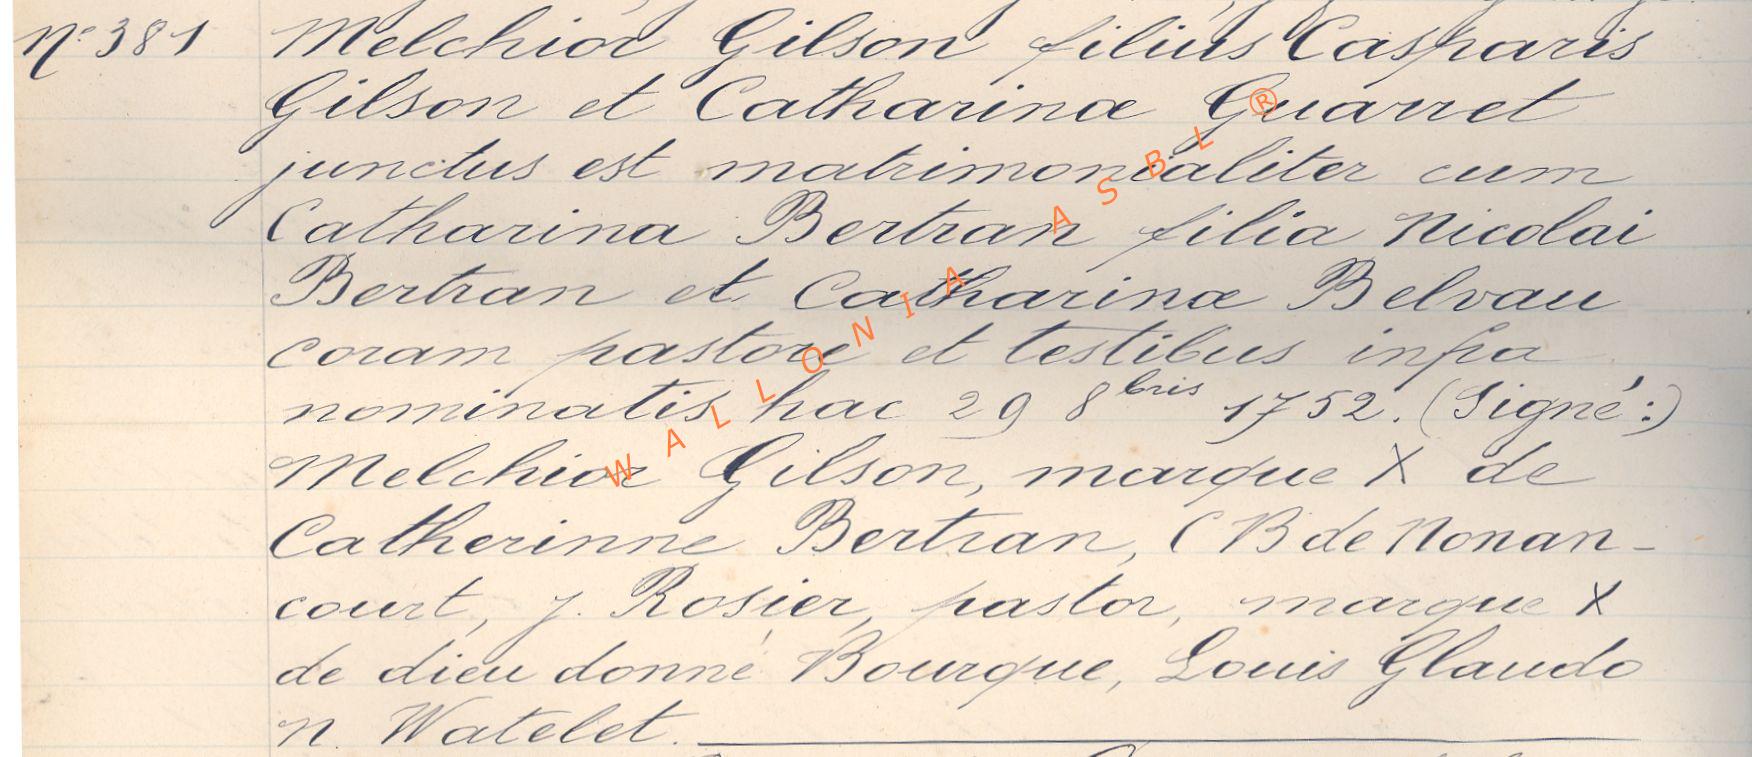 N° 381 Melchior Gilson filius Casparis
Gilson et Catharinæ Guarret
junctus est matrimonialiter cum
Catharina Bertran filia Nicolai
Bertran et Catharinæ Belvau
coram pastore et testibus infra
nominatis hac 29 8bris 1752. (Signé:)
Melchior Gilson, marque X de
Catherinne Bertran, C B de Nonan-
court, J. Rosier, pastor, marque X
de dieu donné Bourque, Louis Glaudo
N. Watelet.
WALLONIA ASBL ®